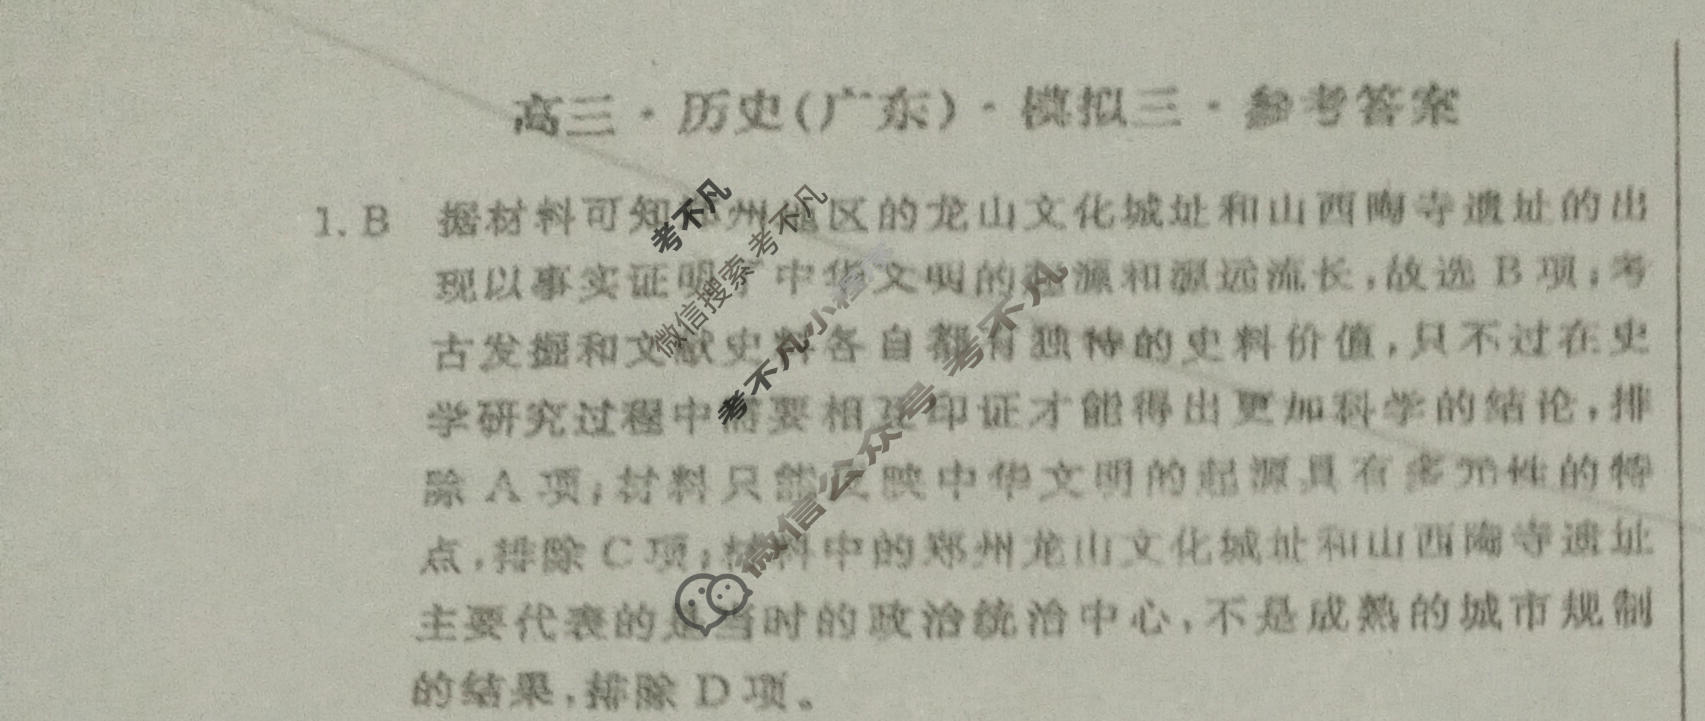 高三·历史(广东)·模拟三·参考答案
1. B 据材料可知郑州地区的龙山文化城址和山西陶寺遗址的出
现以事实证明了中华文明的起源和源远流长,故选 B 项;考
古发掘和文献史料各自都有独特的史料价值,只不过在史
学研究过程中需要相互印证才能得出更加科学的结论,排
除 A 项;材料只能反映中华文明的起源具有多元性的特
点,排除 C 项;材料中的郑州龙山文化城址和山西陶寺遗址
主要代表的是当时的政治统治中心,不是成熟的城市规制
的结果,排除 D 项。
考不凡
微信搜索 考不凡
考不凡小程序
微信公众号 考不凡